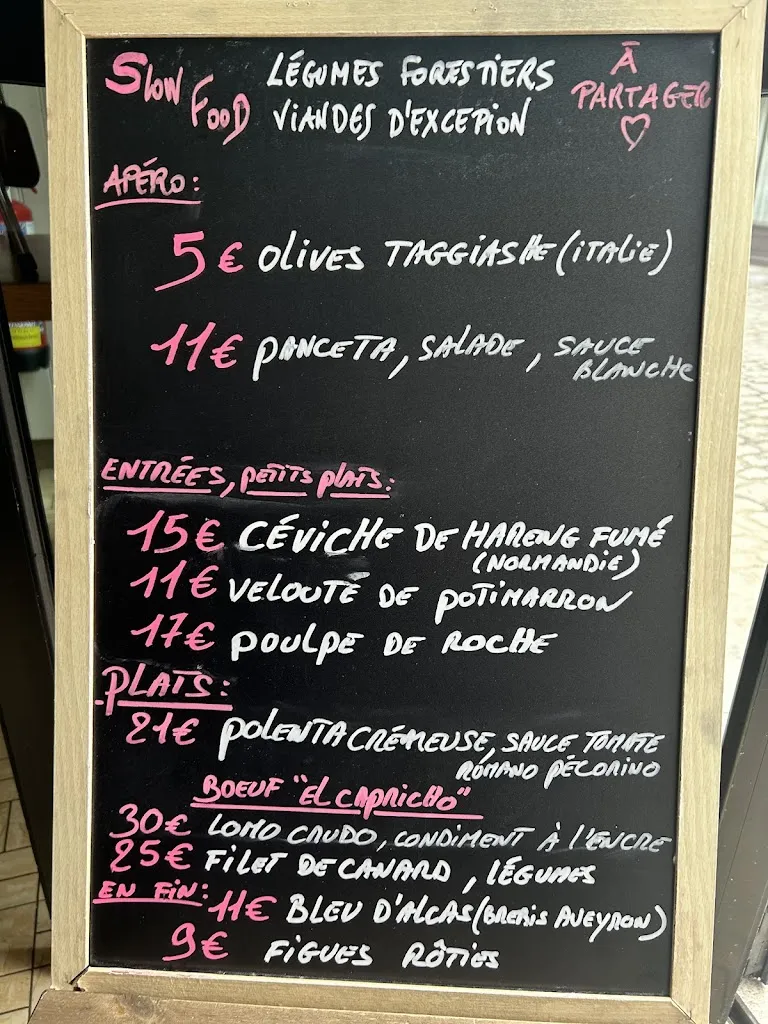 SLOW FOOD
LÉGUMES FORESTIERS
VIANDES D'EXCEPION
À PARTAGER
APÉRO:
5€ OLIVES TAGGIASHE (ITALIE)
11€ PANCETA, SALADE, SAUCE
BLANCHE
ENTRÉES, PETITS PLATS:
15€ CÉVICHE DE HARENG FUMÉ
(NORMANDIE)
11€ VELOUTÉ DE POTIMARRON
17€ POULPE DE ROCHE
PLATS:
21€ POLENTA CRÉMEUSE, SAUCE TOMATE
ROMANO PÉCORINO
BOEUF "EL CAPRICHO"
30€ LOMO CRUDO, CONDIMENT À L'ENCRE
25€ FILET DE CANARD, LÉGUMES
EN FIN: 11€ BLEU D'ALCAS (BRERIS AVEYRON)
9€ FIGUES RÔTIES